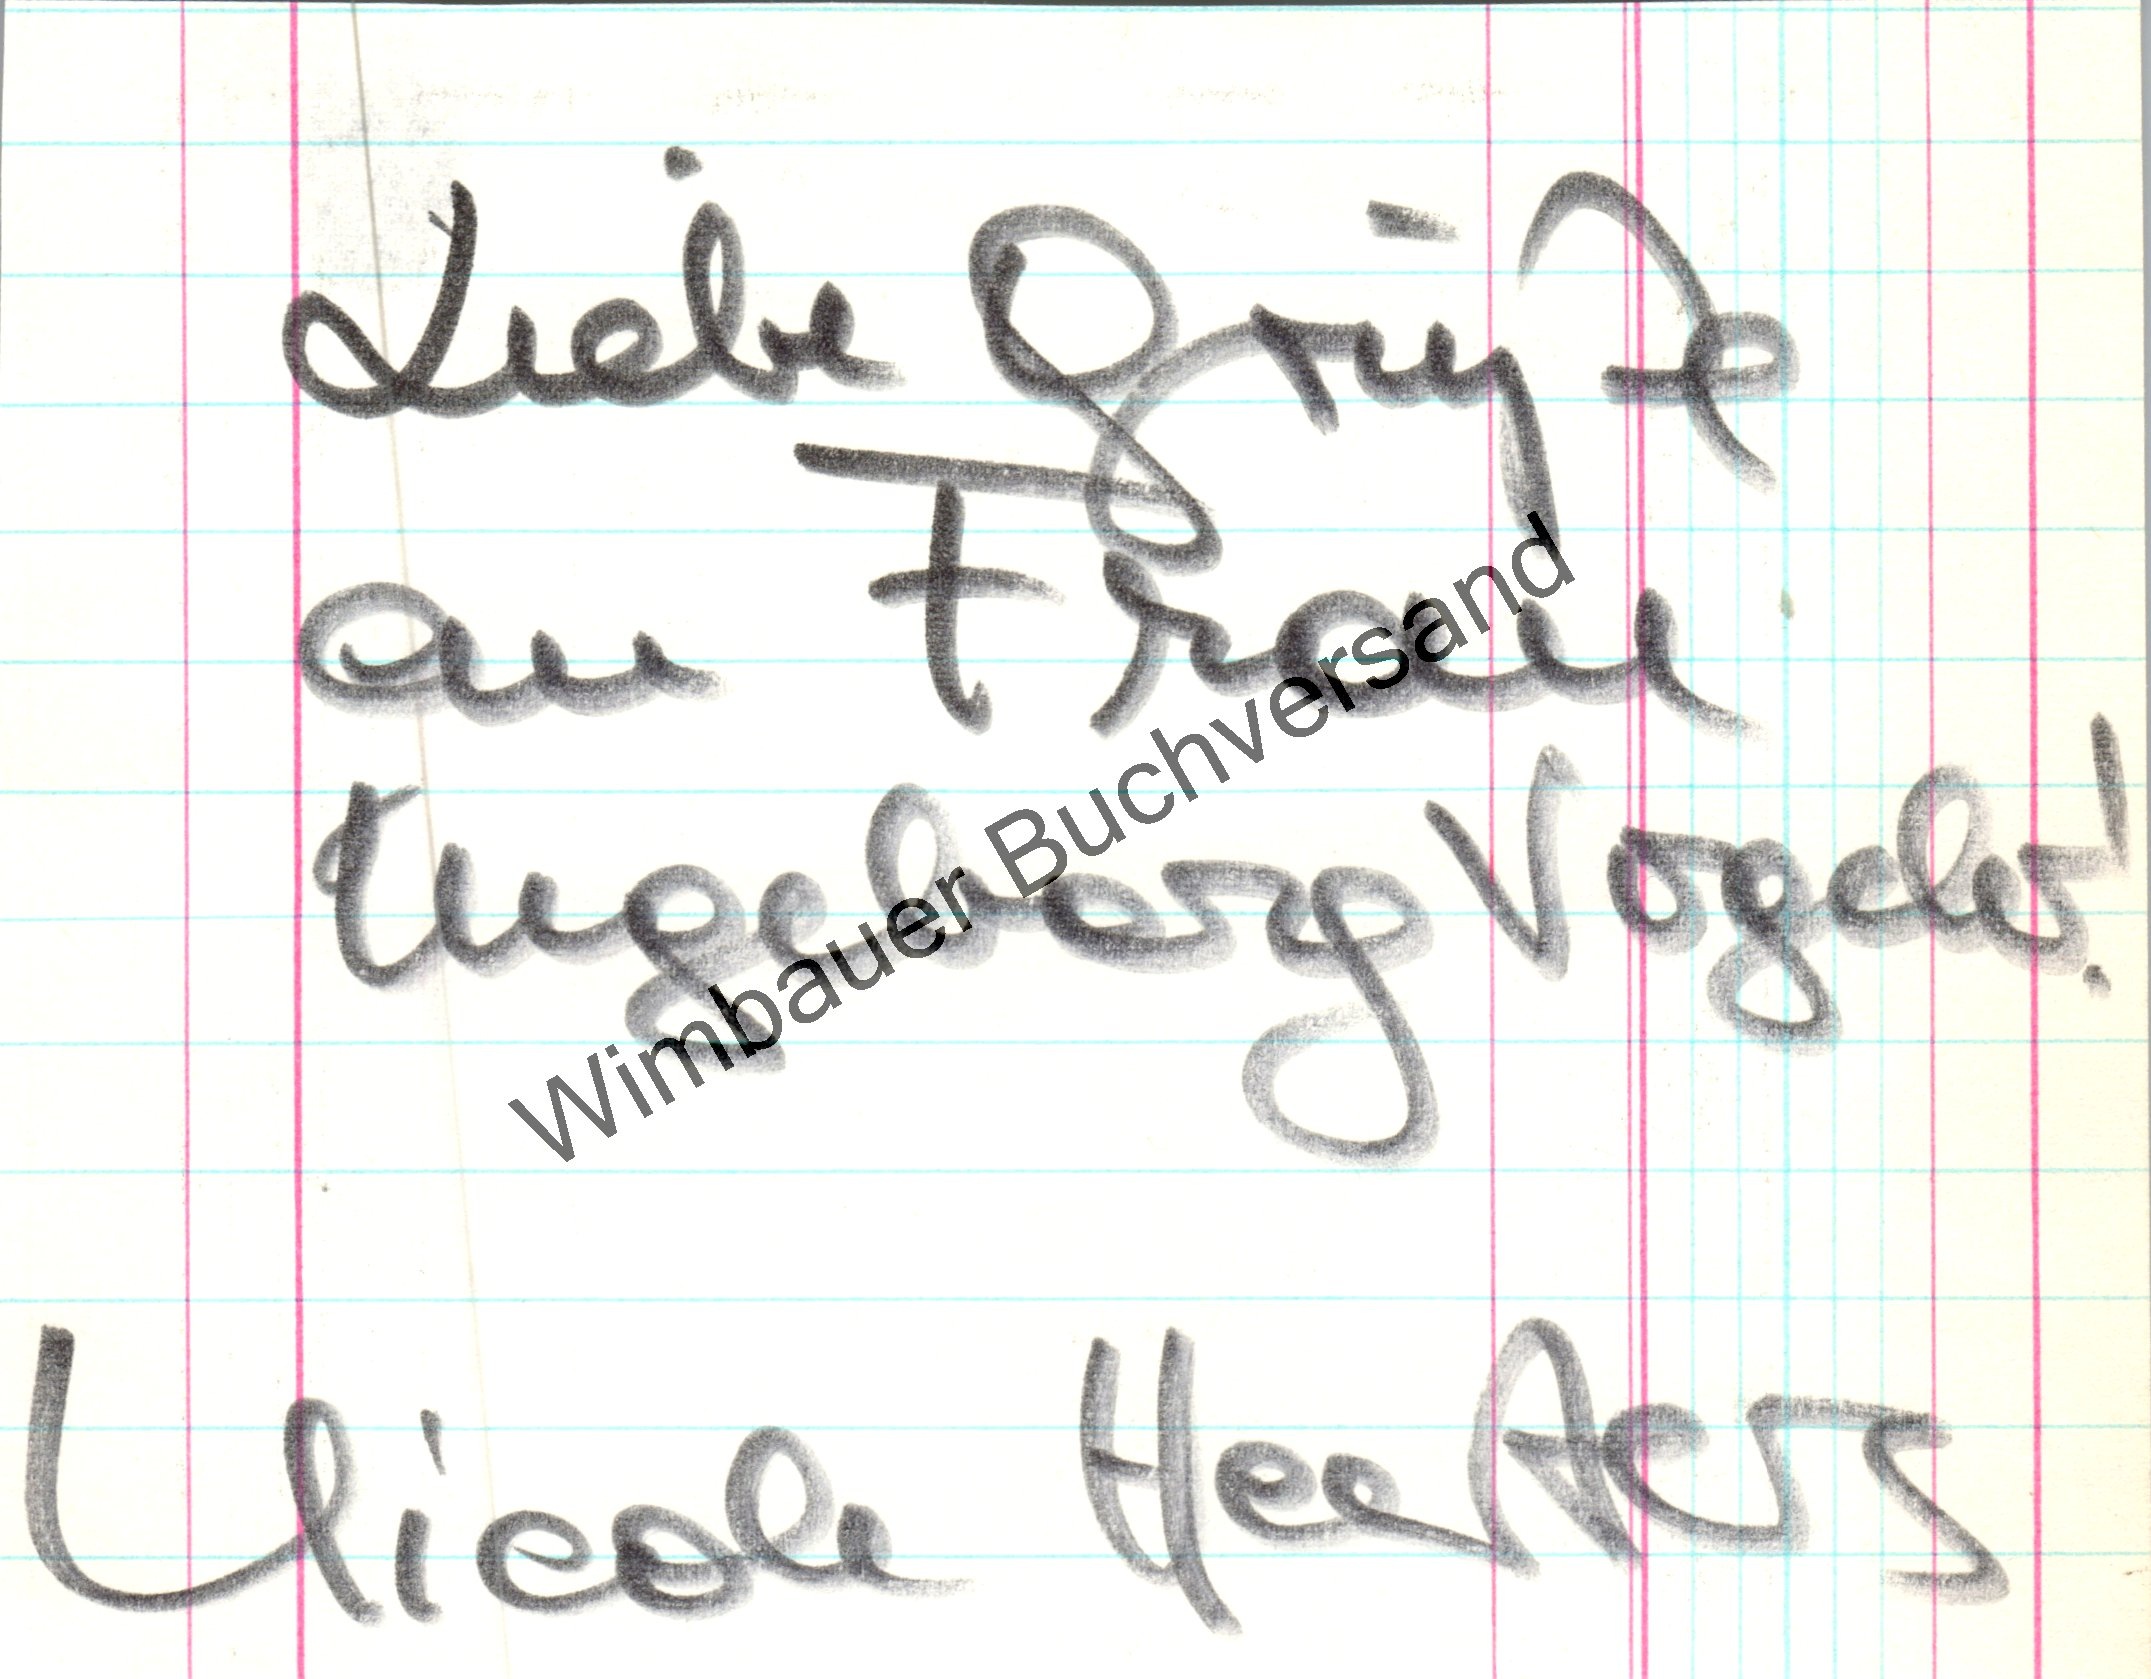 Liebe Grüße
an Frau
Ingeborg Vogeler!
Nicole Heesters
Wimbauer Buchversand